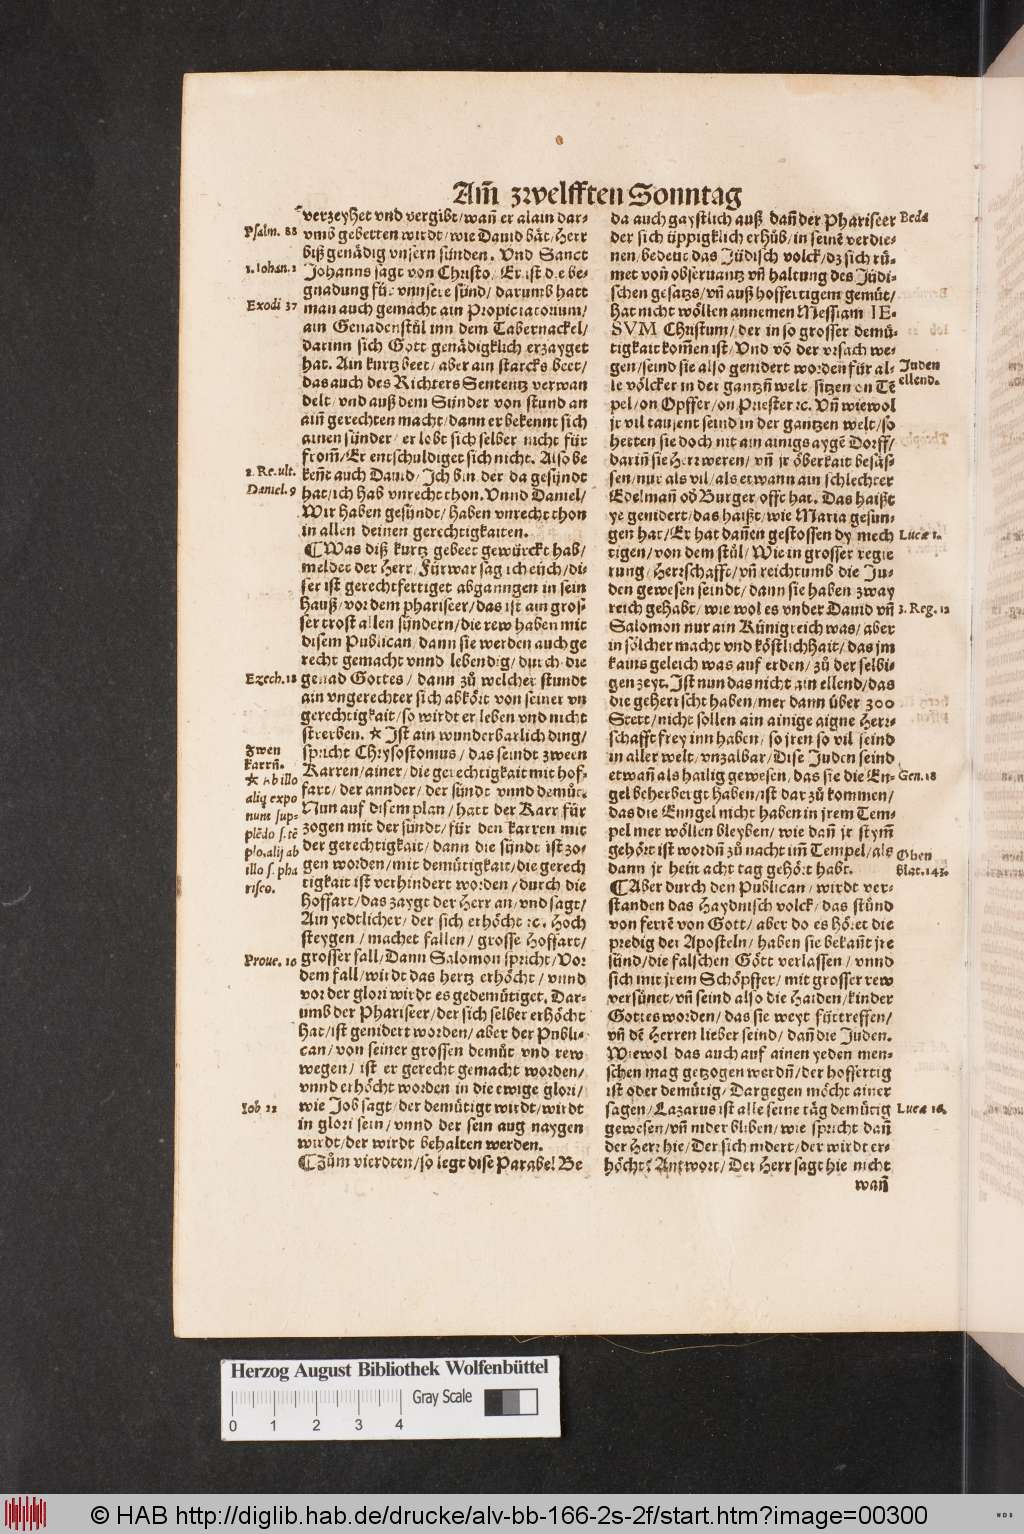 Am̄ zwelfften Sonntag
verzeyhet vnd vergibt/wañ er alain dar-
vmb gebetten wirdt/wie Dauid bät/Herr
biß genädig vnsern sünden. Vnd Sanct
Johanns sagt von Christo/ Er ist die be-
gnadung für vnnsere sünd/ darumb hatt
man auch gemacht ain Propiciatorium/
ain Genadenstůl inn dem Tabernackel/
darinn sich Gott genädigklich erzayget
hat. Ain kurtz beet/ aber ain starcks beet/
das auch des Richters Sententz verwan
delt/ vnd auß dem Sünder von stund an
aiñ gerechten macht/dann er bekennt sich
ainen sünder/ er lobt sich selber nicht für
from̄/Er entschuldiget sich nicht. Also be
keñt auch Dauid/ Ich bin der da gesündt
hat/ich hab vnrecht thon. Vnnd Daniel/
Wir haben gesündt/ haben vnrecht thon
in allen deinen gerechtigkaiten.
¶Was diß kurtz gebeet gewürckt hab/
meldet der Herr/ Fürwar sag ich eüch/di-
ser ist gerechtfertiget abganngen in sein
Hauß/vor dem phariseer/das ist ain gros-
ser trost allen sündern/die rew haben mit
disem Publican/ dann sie werden auch ge
recht gemacht vnnd lebendig/ durch die
genad Gottes/ dann zů welcher stundt
ain vngerechter sich abkört von seiner vn
gerechtigkait/so wirdt er leben vnd nicht
sterben. * Ist ain wunderbarlich ding/
spricht Chrysostomus/ das seindt zween
Karren/ainer/ die gerechtigkait mit hof-
fart/ der annder/ der sündt vnnd demůt.
Nun auf disem plan/ hatt der Karr für
zogen mit der sündt/ für den karren mit
der gerechtigkait/ dann die sündt ist zo-
gen worden/mit demůtigkait/die gerech
tigkait ist verhindert worden/durch die
hoffart/das zaygt der Herr an/vnd sagt/
Ain yedtlicher/ der sich erhöcht ꝛc. Hoch
steygen/ machet fallen/ grosse Hoffart/
grosser fall/Dann Salomon spricht/Vor
dem fall/wirdt das hertz erhöcht/ vnnd
vor der glori wirdt es gedemütiget. Dar-
umb der Phariseer/der sich selber erhöcht
hat/ist genidert worden/ aber der Publi-
can/ von seiner grossen demůt vnd rew
wegen/ ist er gerecht gemacht worden/
vnnd erhöcht worden in die ewige glori/
wie Job sagt/der demütigt wirdt/wirdt
in glori sein/ vnnd der sein aug naygen
wirdt/der wirdt behalten werden.
¶Zům vierdten/so legt dise Parabel Be
Psalm. 88
1. Iohan. 2
Exodi 37
2. Re. ult.
Daniel. 9
Ezech. 18
Zwen
karrñ.
* Ab illo
aliq expo
nunt sup-
plēdo s. tē
plo. alij ab
illo s. pha
riseo.
Proue. 16
Iob 22
da auch gaystlich auß dañ der Phariseer
der sich üppigklich erhůb/in seinē verdie-
nen/bedeut das Jüdisch volck/dz sich rů-
met von obseruantz vñ haltung des Jüdi-
schen gesatzs/vñ auß hoffertigem gemůt/
hat nicht wöllen annemen Messiam IE-
SVM Christum/ der in so grosser demů-
tigkait kom̄en ist/Vnd vō der vrsach we-
gen/seind sie also genidert worden für al-
le völcker in der gantzñ welt/sitzen on Tē
pel/on Opffer/on Priester ꝛc. Vñ wiewol
jr vil tausent seind in der gantzen welt/so
hetten sie doch nit ain ainigs aygē Dorff/
dariñ sie Herr weren/ vñ jr öberkait besäs-
sen/nur als vil/als etwann ain schlechter
Edelmañ oď Burger offt hat. Das haißt
ye genidert/das haißt/wie Maria gesun-
gen hat/Er hat dañen gestossen dy mech
tigen/von dem stůl/Wie in grosser regie
rung/ Herrschafft/vñ reichtumb die Ju-
den gewesen seindt/dann sie haben zway
reich gehabt/wie wol es vnder Dauid vñ
Salomon nur ain Künigreich was/aber
in sölcher macht vnd köstlichhait/das jm
kains geleich was auf erden/ zů der selbi-
gen zeyt. Ist nun das nicht ain ellend/das
die geherrscht haben/mer dann über 300
Stett/nicht sollen ain ainige aigne Herr-
schafft frey inn haben/ so jren so vil seind
in aller welt/vnzalbar/Dise Juden seind
etwañ als hailig gewesen/das sie die En-
gel beherbergt haben/ist dar zů kommen/
das die Enngel nicht haben in jrem Tem-
pel mer wöllen bleyben/ wie dañ jr stym̄
gehört ist wordñ zů nacht im̄ Tempel/als
dann jr heüt acht tag gehört habt.
¶Aber durch den Publican/ wirdt ver-
standen das Haydnisch volck/das stůnd
von ferrē von Gott/aber do es höret die
predig der Aposteln/haben sie bekañt jre
sünd/die falschen Gött verlassen/ vnnd
sich mit jrem Schöpffer/mit grosser rew
versünet/vñ seind also die Haiden/kinder
Gottes worden/das sie weyt fürtreffen/
vñ dē Herren lieber seind/ dañ die Juden.
Wiewol das auch auf ainen yeden men-
schen mag getzogen werdñ/der hoffertig
ist oder demütig/Dargegen möcht ainer
sagen/Lazarus ist alle seine täg demütig
gewesen/vñ nider bliben/wie spricht dañ
der Herr hie/Der sich nidert/der wirdt er-
höcht? Antwort/ Der Herr sagt hie nicht
wañ
Beda
Juden
ellend.
Lucæ 1.
3. Reg. 12
Gen. 18
Oben
blat. 143.
Lucæ 16.
Herzog August Bibliothek Wolfenbüttel
Gray Scale
0 1 2 3 4
© HAB http://diglib.hab.de/drucke/alv-bb-166-2s-2f/start.htm?image=00300